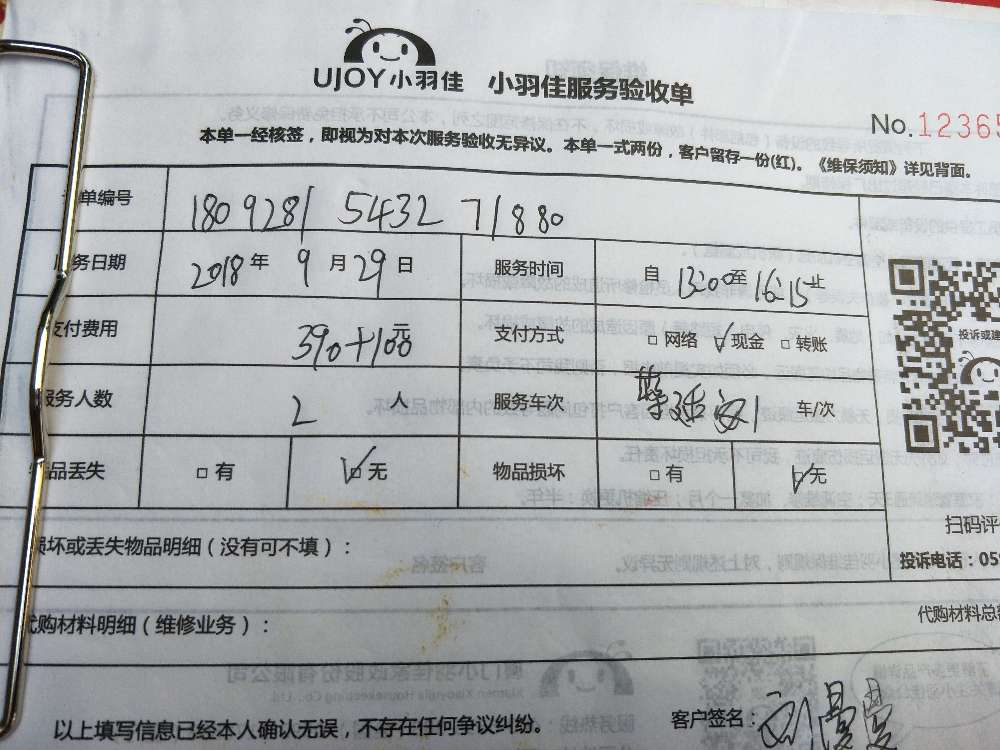 UJOY小羽佳 小羽佳服务验收单
No.12365
本单一经核签，即视为对本次服务验收无异议。本单一式两份，客户留存一份(红)。《维保须知》详见背面。
单编号 180928154327/880
服务日期 2018年 9月29日 服务时间 自13:00至16:15止
支付费用 390+100元 支付方式 □网络 ☑现金 □转账
投诉或建
服务人数 2 人 服务车次 1 车/次
物品丢失 □有 ☑无 物品损坏 □有 ☑无
扫码评
损坏或丢失物品明细（没有可不填）：
投诉电话：05
代购材料明细（维修业务）：
代购材料总
以上填写信息已经本人确认无误，不存在任何争议纠纷。 客户签名：刘曼曼